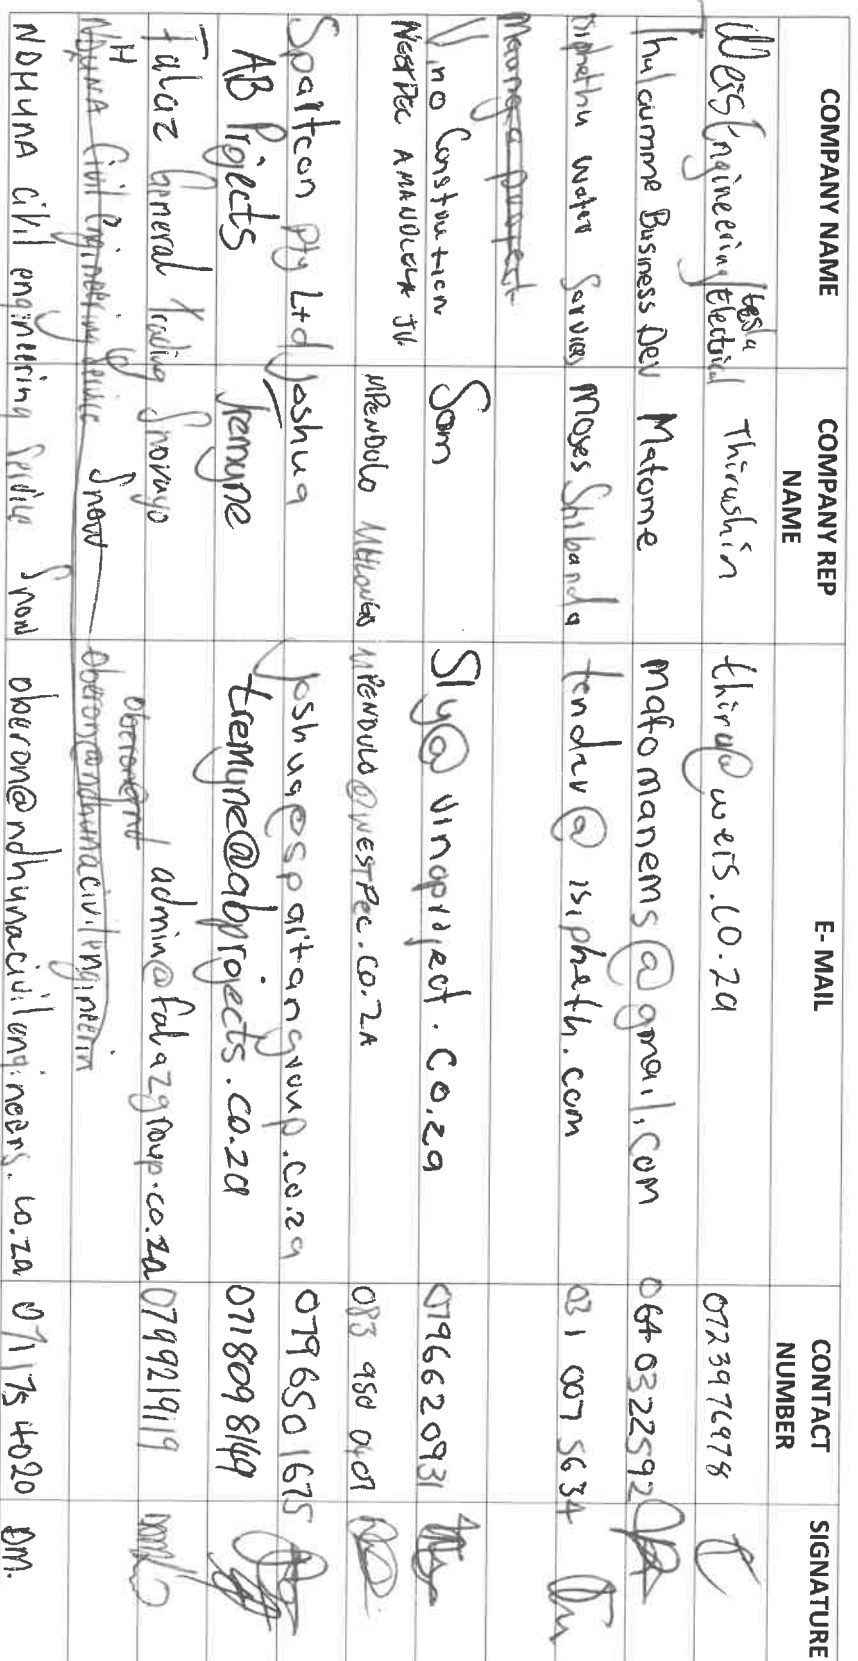 COMPANY NAME COMPANY REP NAME E- MAIL CONTACT NUMBER SIGNATURE
Weis Engineering / tesla Electrical Thirushin thiru@weis.co.za 0723976978
Thulaumme Business Dev Matome matomanems@gmail.com 0640322592
Isiphethu Water Services Moses Shibanda tender@isipheth.com 031 007 5634
Maunga project
Vino Construction Sam Sly@vinoproject.co.za 0796620931
WESTPEC AMANDLELA JV. MPENDULO MHLONGO MPENDULO@WESTPEC.CO.ZA 083 980 0401
Spartcon pty Ltd Joshua Joshua@spartangroup.co.za 0796501675
AB Projects Tremyne tremyne@abprojects.co.za 0718098149
Falaz General Trading Snovuyo admin@falazgroup.co.za 0799219119
H oberon@nd
NDUNA Civil Engineering Service Snow oberon@ndhunacivilengineerin
NDHUNA Civil engineering Service Snow oberon@ndhunacivilengineers.co.za 071 175 4020 DM.